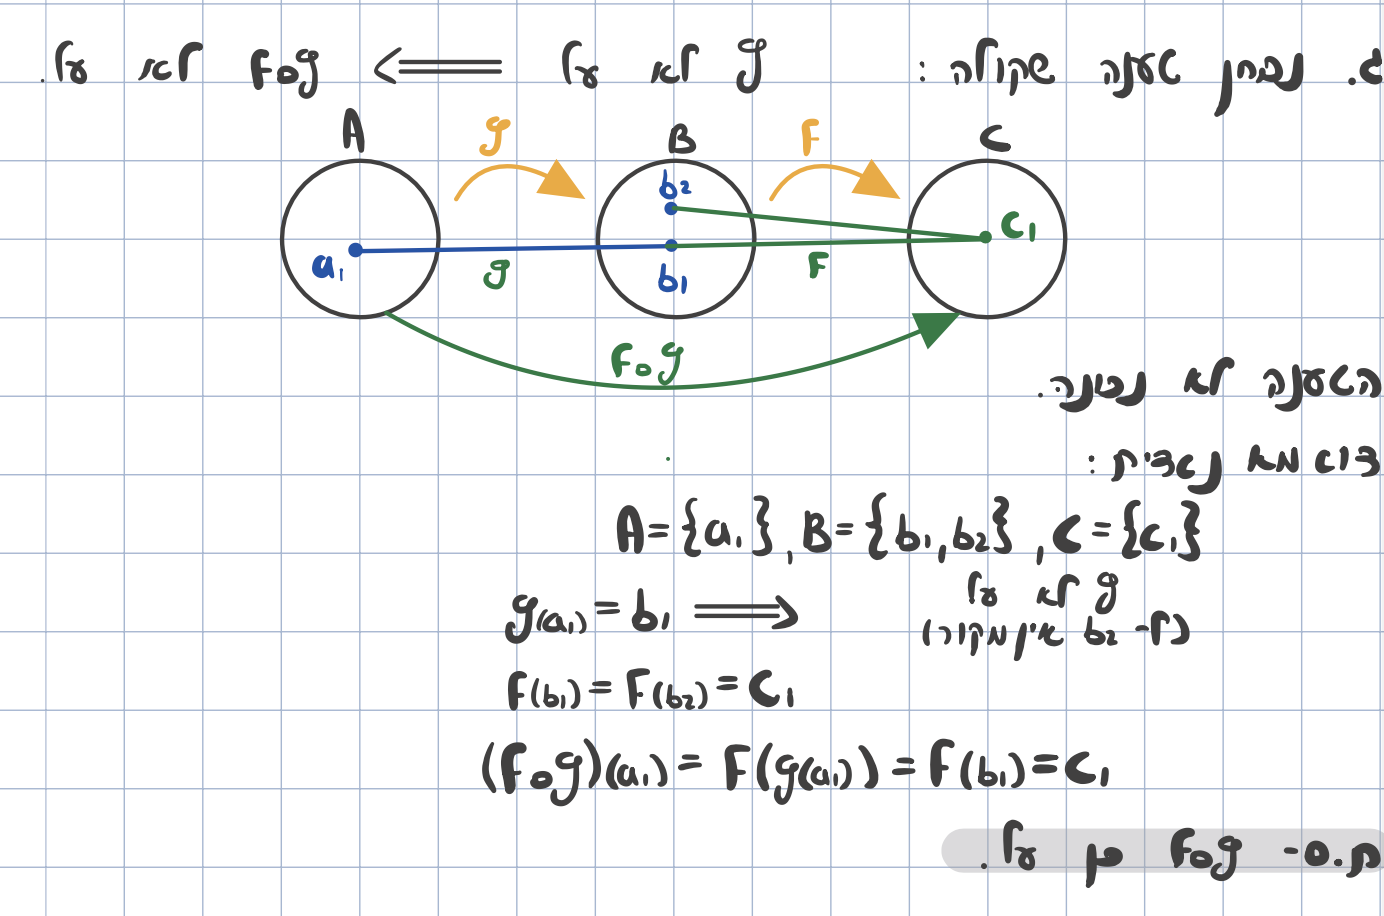 ג. נבחן טענה שקולה : g לא על ⟸ f∘g לא על.
A g B F C
b2
a1 g b1 F c1
f∘g
הטענה לא נכונה.
דוגמא נגדית :
A={a1}, B={b1,b2}, C={c1}
g(a1)=b1 ⟹ g לא על
(ל- b2 אין מקור)
F(b1)=F(b2)=C1
(f∘g)(a1)=F(g(a1))=F(b1)=C1
ת.ס- f∘g כן על.